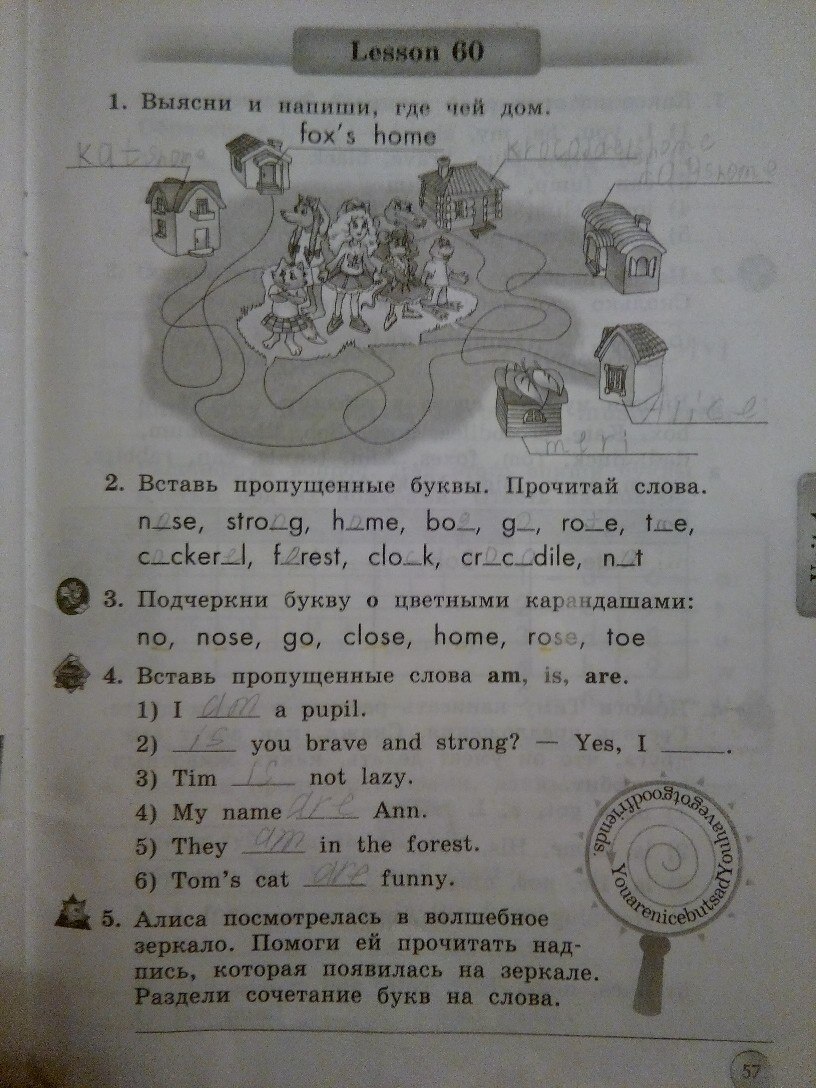 Lesson 60
1. Выясни и напиши, где чей дом.
fox's home
meri
Alice
2. Вставь пропущенные буквы. Прочитай слова.
n_se, stro_g, h_me, bo_, g_, ro_e, t_e,
c_cker_l, f_rest, clo_k, cr_c_dile, n_t
3. Подчеркни букву о цветными карандашами:
no, nose, go, close, home, rose, toe
4. Вставь пропущенные слова am, is, are.
1) I am a pupil.
2) is you brave and strong? — Yes, I ____.
3) Tim is not lazy.
4) My name are Ann.
5) They am in the forest.
6) Tom's cat are funny.
YouarenicebutsadYouhavegotgoodfriends.
5. Алиса посмотрелась в волшебное
зеркало. Помоги ей прочитать над-
пись, которая появилась на зеркале.
Раздели сочетание букв на слова.
57